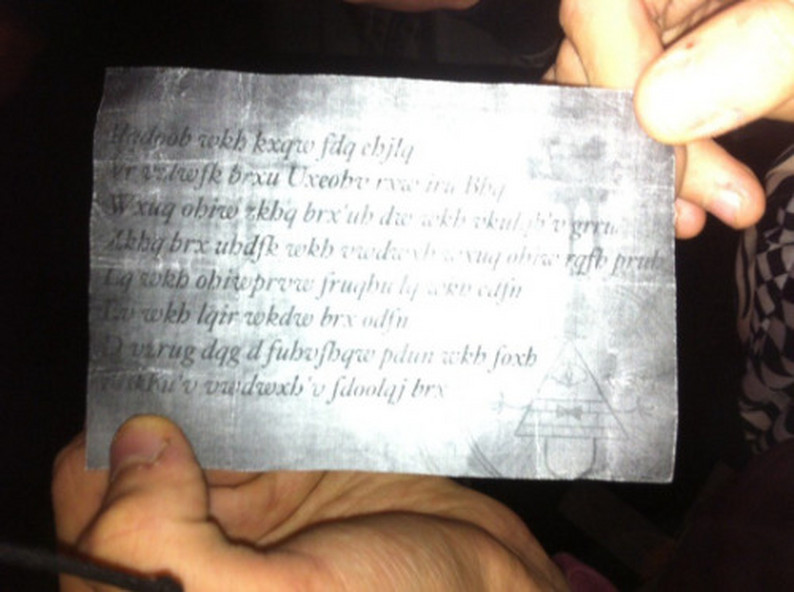 Ilqdoob wkh kxqw fdq ehjlq
Vr vzlwfk brxu Uxeohv rxw iru Bhq
Wxuq ohiw zkhq brx'uh dw wkh vkulqh'v grru
Zkhq brx uhdfk wkh vwdwxh wxuq ohiw rqfh pruh
Lq wkh ohiwprvw fruqhu lq wkh edfn
Lv wkh lqir wkdw brx odfn
D vzrug dqg d fuhvfhqw pdun wkh foxh
vwdwxh'v fdoolqj brx